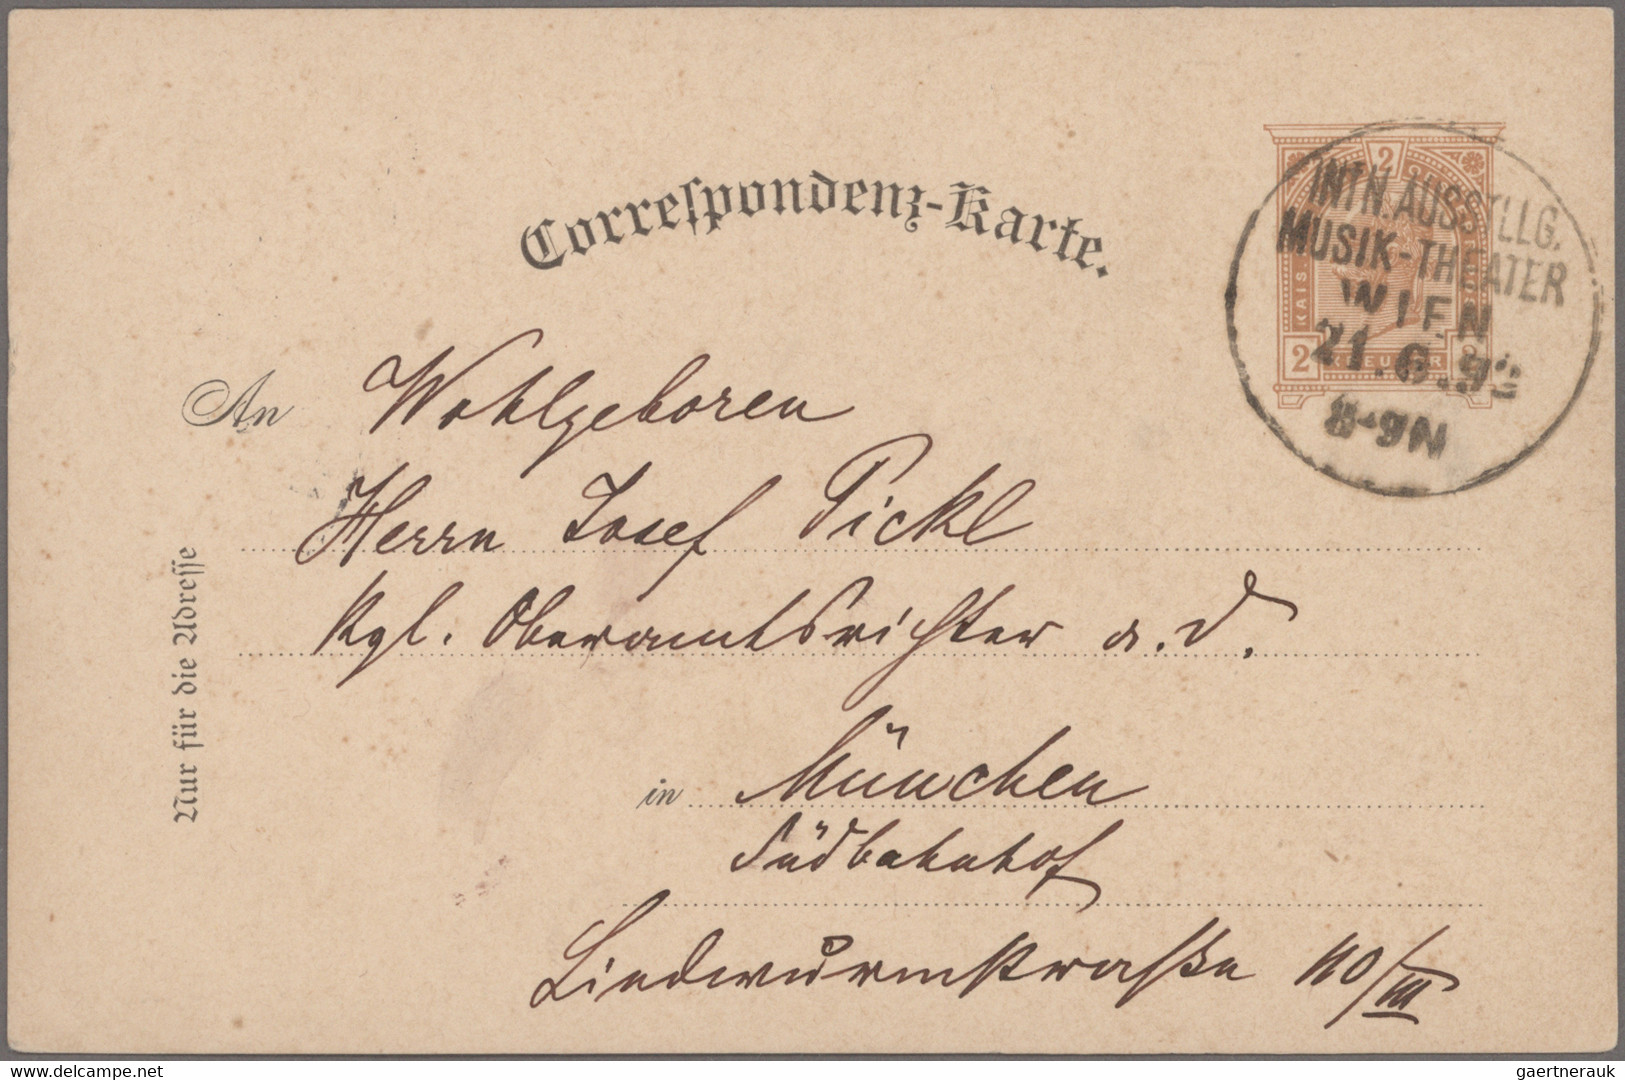 Correspondenz-Karte.
2
INTN. AUSSTLLG.
MUSIK-THEATER
WIEN
21.6.92
8-9N
KAIS
2 KREUZER 2
An Wohlgeboren
Herrn Josef Pickl
Kgl. Oberamtsrichter a. D.
in München
Südbahnhof
Lindwurmstraße 110/III
Nur für die Adresse
delcampe.net
gaertnerauk